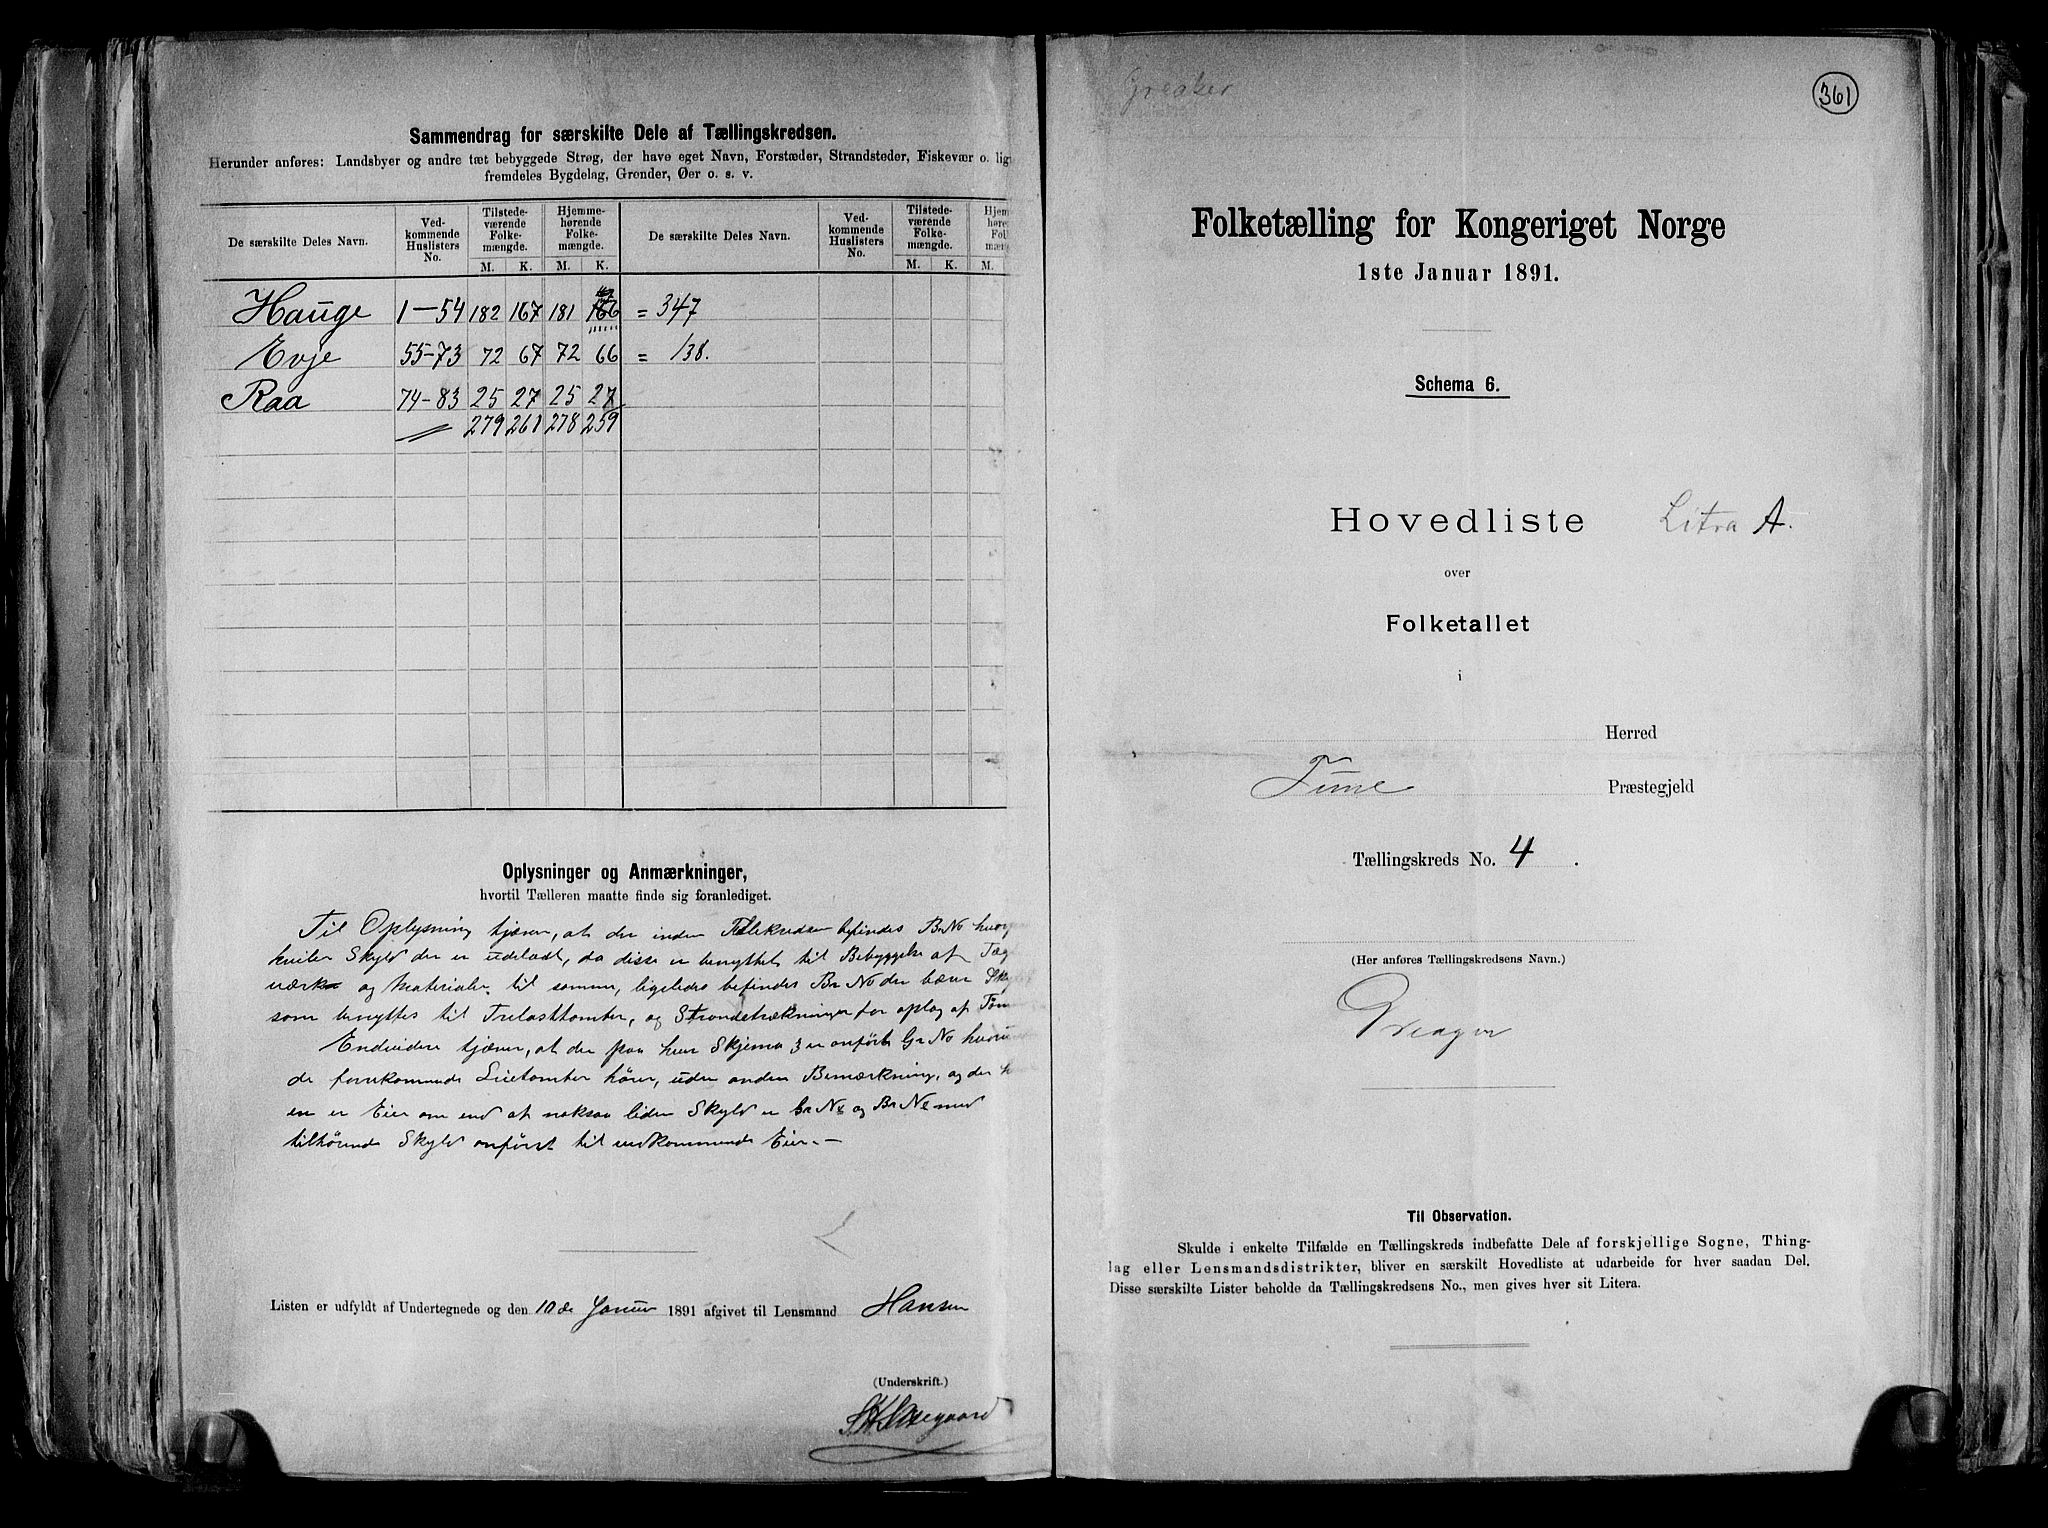 Sammendrag for særskilte Dele af Tællingskredsen.
Herunder anføres: Landsbyer og andre tæt bebyggede Strøg, der have eget Navn, Forstæder, Strandsteder, Fiskevær o. lig
fremdeles Bygdelag, Grender, Øer o. s. v.
De særskilte Deles Navn. Ved-kommende Huslisters No. Tilstede-værende Folke-mængde. Hjemme-hørende Folke-mængde. De særskilte Deles Navn. Ved-kommende Huslisters No. Tilstede-værende Folke-mængde. Hjem høre Fol mæn
M. K. M. K. M. K. M.
Hauge 1-54 182 167 181 166 = 347
Evje 55-73 72 67 72 66 = 138.
Raa 74-83 25 27 25 27
279 261 278 259
Oplysninger og Anmærkninger,
hvortil Tælleren maatte finde sig foranlediget.
Til Oplysning tjæner, at der inden Tællekredsen befindes Br No
hviler Skyld der er udeladt, da disse er benyttet til Bebyggelse af
og Materialer til somme, ligeledes befindes Br No der bærer
som benyttes til Trelasttomter, og Strandstrækninger for oplag af
Endvidere tjæner, at der paa hver Skjema 3 er anført Gr No
de forekommende hører, uden anden Bemærkning, og der
en er Eier om end af noksaa liden Skyld er Gr No og Br No med
tilhørende Skyld anført til vedkommende Eier.-
Listen er udfyldt af Undertegnede og den 10de Januar 1891 afgivet til Lensmand Hansen
(Underskrift.)
Greaker
361
Folketælling for Kongeriget Norge
1ste Januar 1891.
Schema 6.
Hovedliste Litra A.
over
Folketallet
i
Herred
Tune Præstegjeld
Tællingskreds No. 4.
(Her anføres Tællingskredsens Navn.)
Greager
Til Observation.
Skulde i enkelte Tilfælde en Tællingskreds indbefatte Dele af forskjellige Sogne, Thing-
lag eller Lensmandsdistrikter, bliver en særskilt Hovedliste at udarbeide for hver saadan Del.
Disse særskilte Lister beholde da Tællingskredsens No., men gives hver sit Litera.